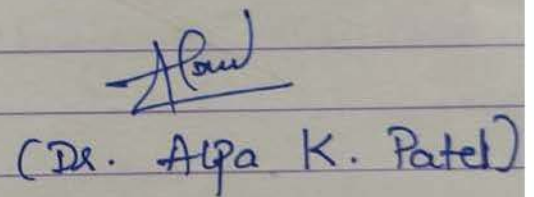 (Dr. Alpa K. Patel)